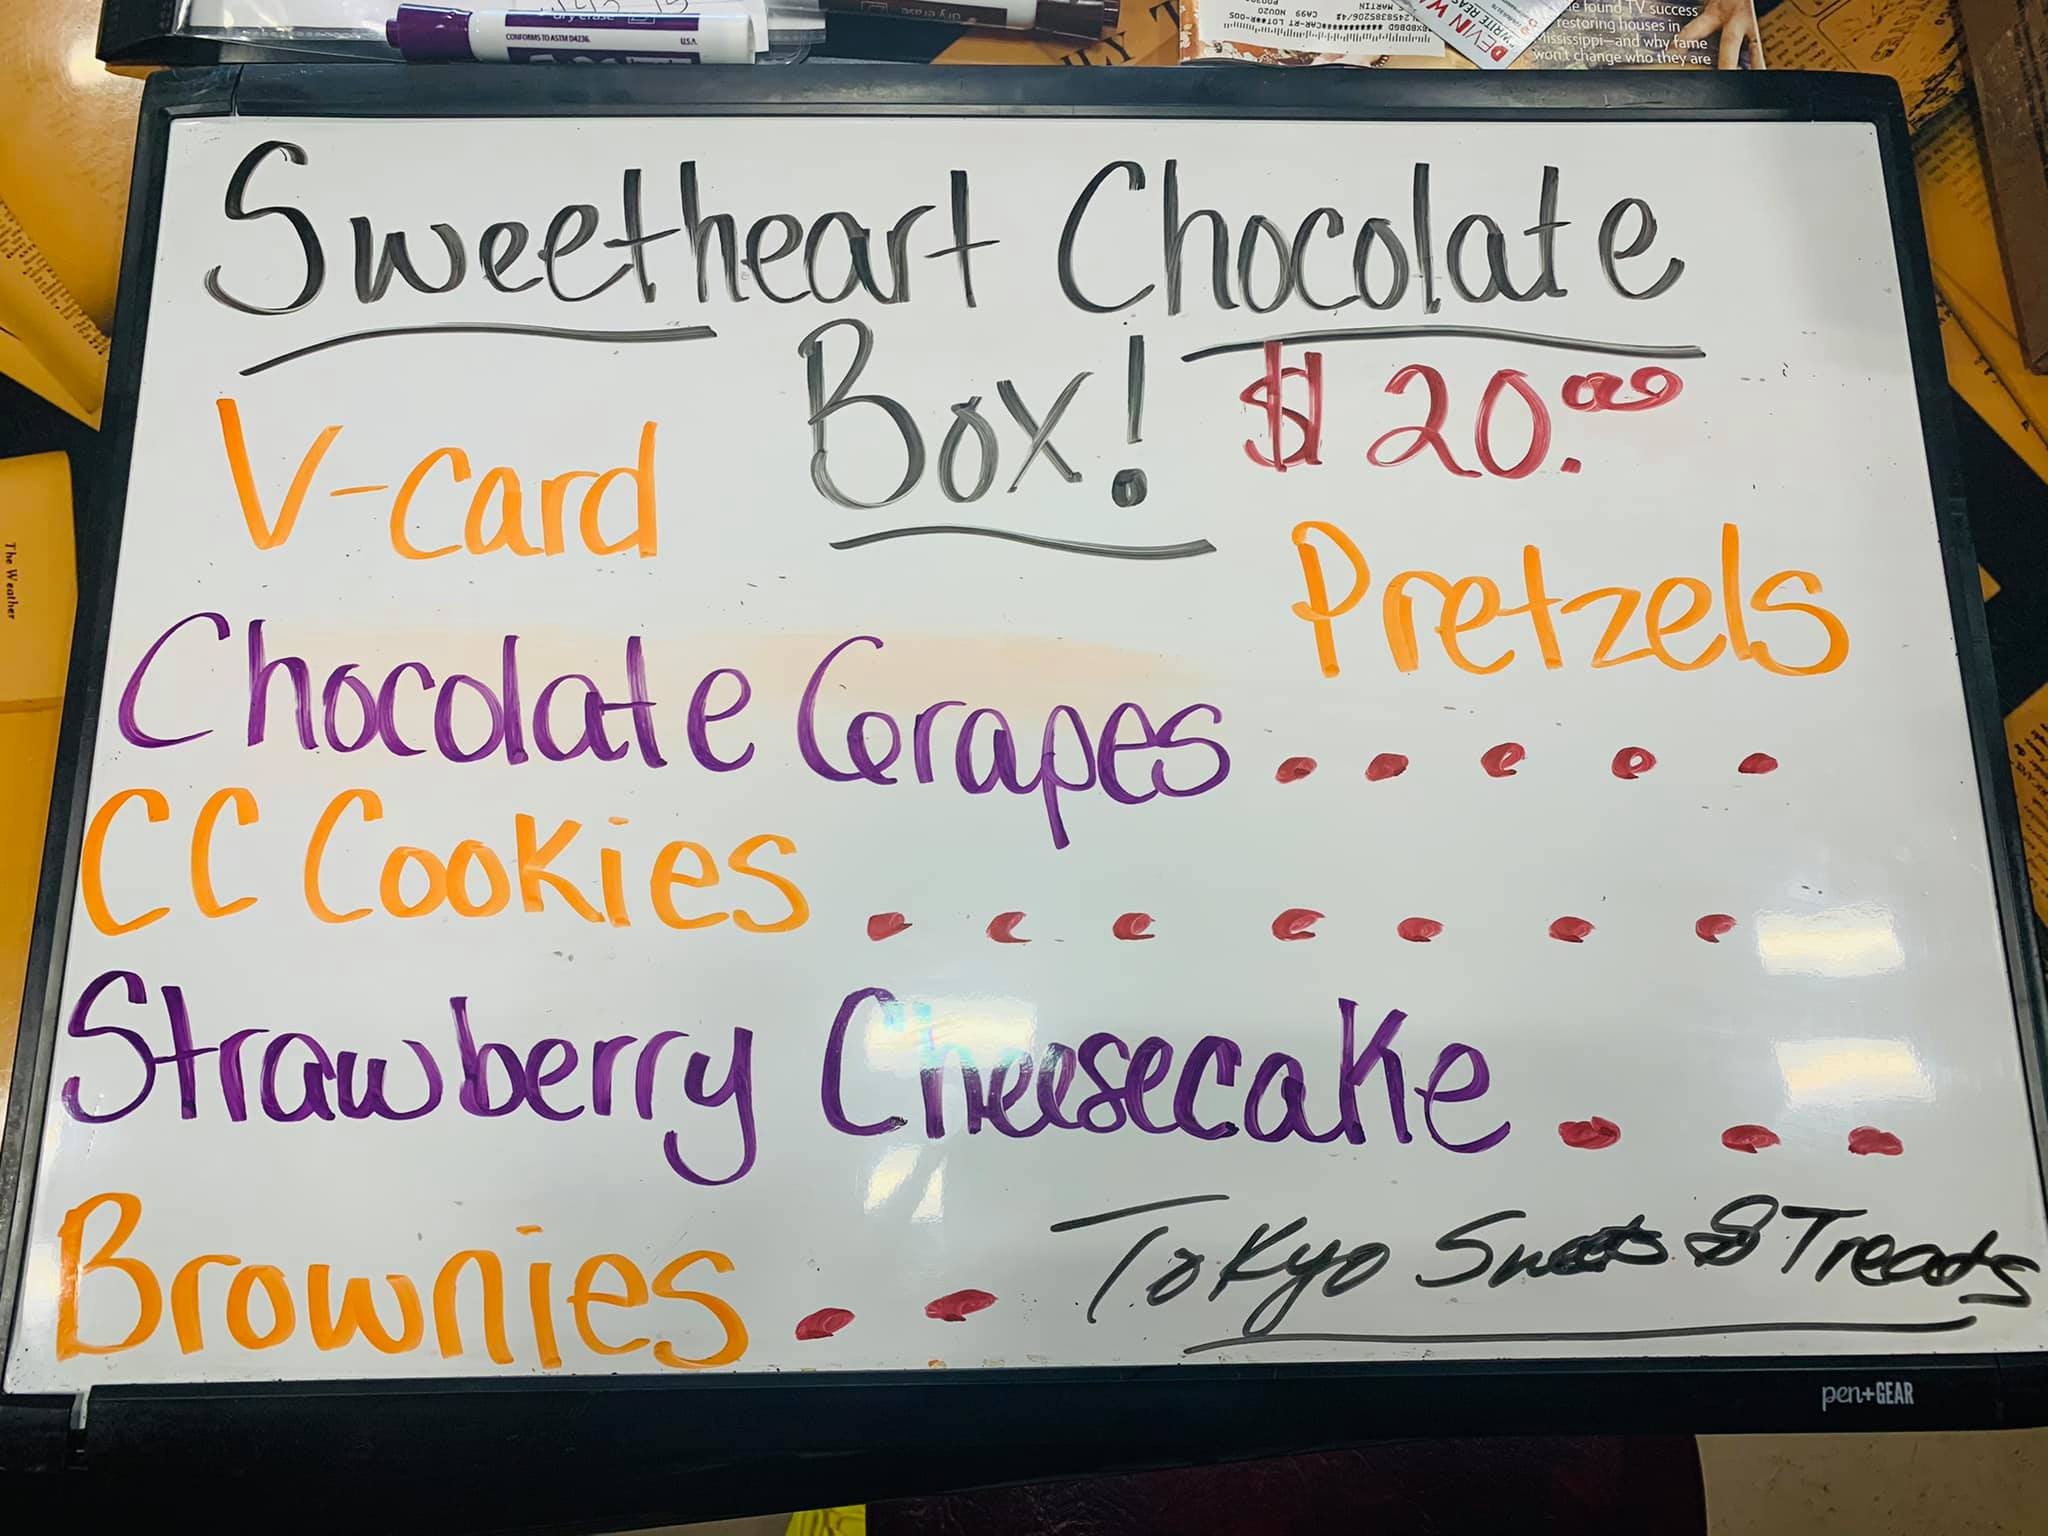 dry erase
CONFORMS TO ASTM D4236 U.S.A.
dry erase
found TV success
restoring houses in
Mississippi—and why fame
won't change who they are
MARTIN
Sweetheart Chocolate
Box! $20.00
V-Card
Pretzels
Chocolate Grapes . . . . .
CC Cookies . . . . . . .
Strawberry Cheesecake . . .
Brownies . .
Tokyo Sweets & Treats
pen+GEAR
The Weather